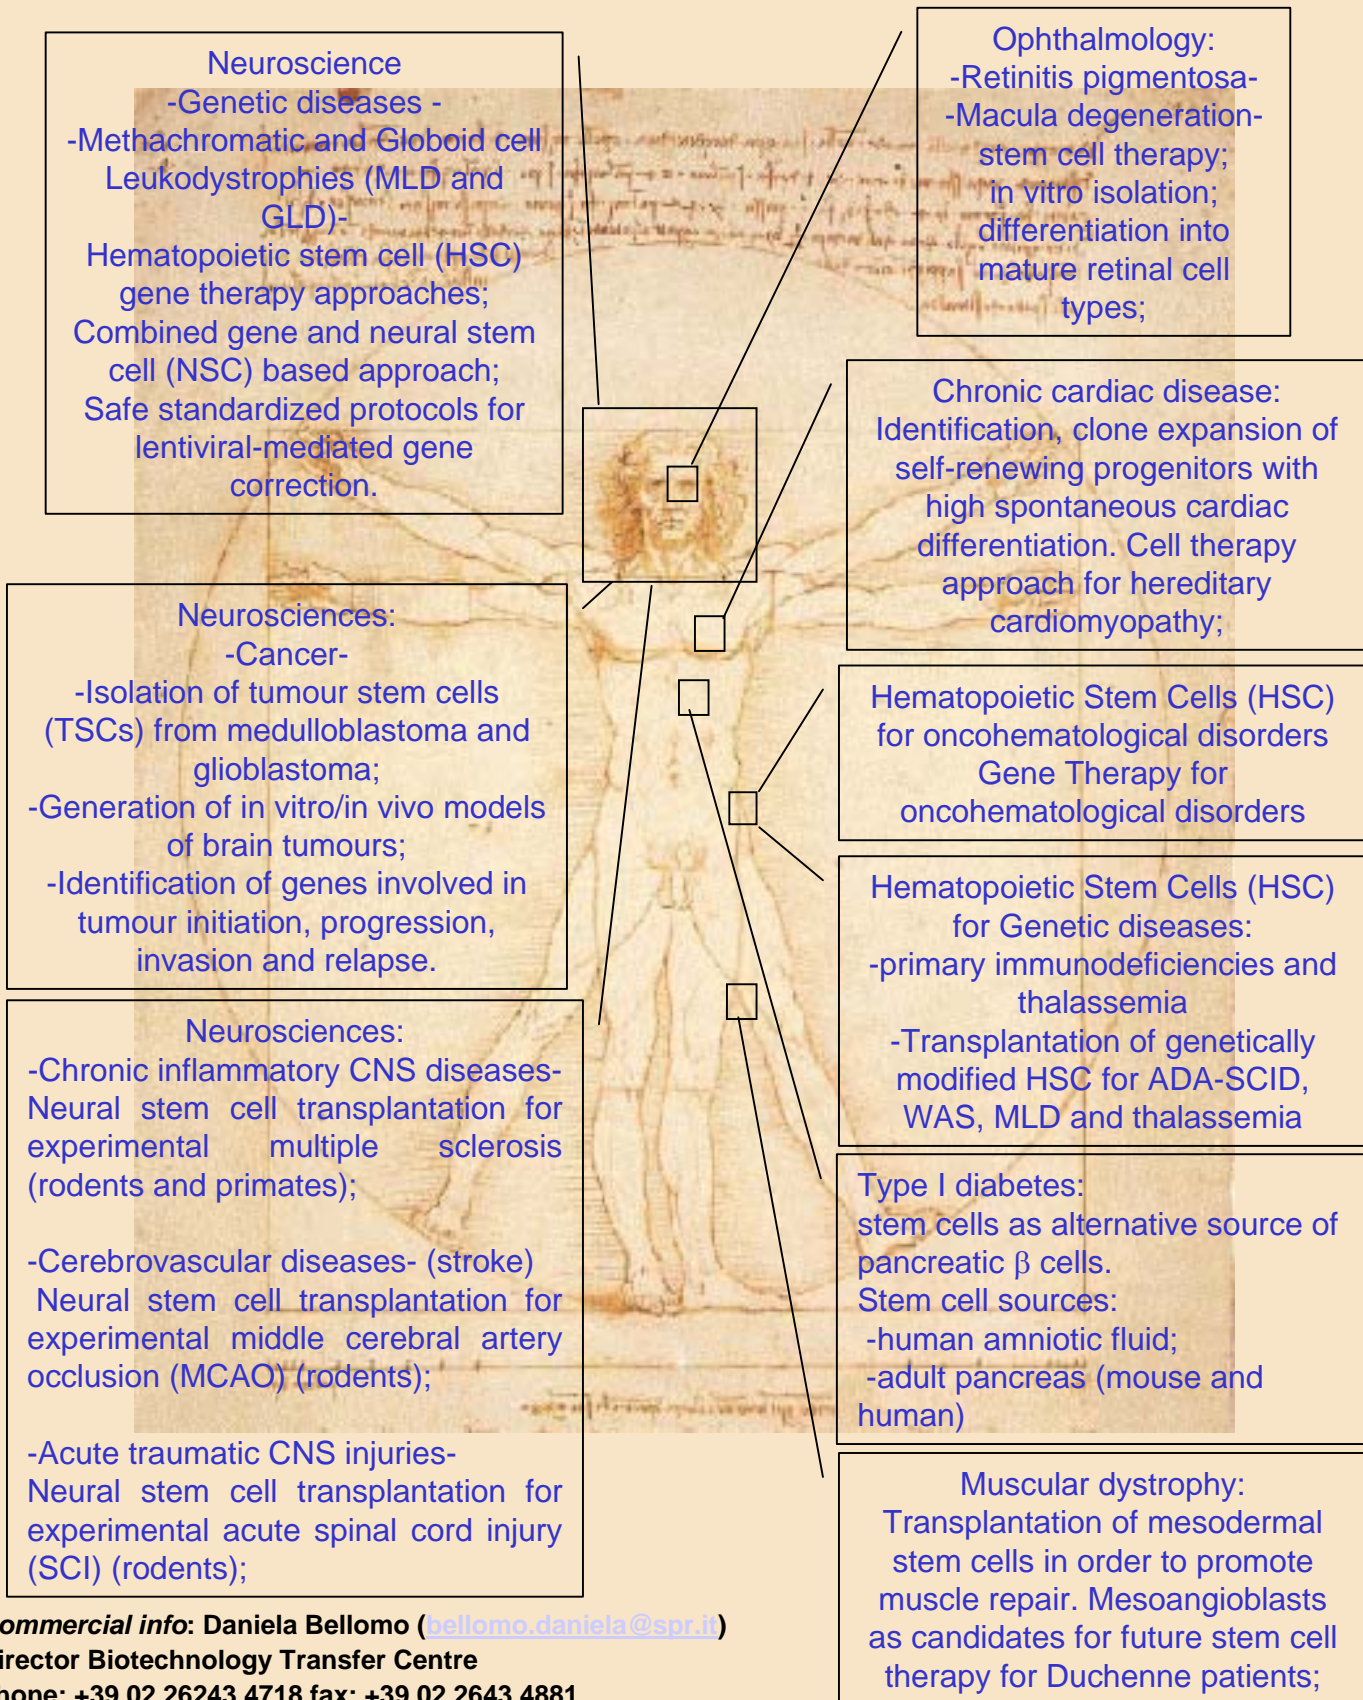 Neuroscience
-Genetic diseases -
-Methachromatic and Globoid cell
Leukodystrophies (MLD and
GLD)-
Hematopoietic stem cell (HSC)
gene therapy approaches;
Combined gene and neural stem
cell (NSC) based approach;
Safe standardized protocols for
lentiviral-mediated gene
correction.
Neurosciences:
-Cancer-
-Isolation of tumour stem cells
(TSCs) from medulloblastoma and
glioblastoma;
-Generation of in vitro/in vivo models
of brain tumours;
-Identification of genes involved in
tumour initiation, progression,
invasion and relapse.
Neurosciences:
-Chronic inflammatory CNS diseases-
Neural stem cell transplantation for
experimental multiple sclerosis
(rodents and primates);
-Cerebrovascular diseases- (stroke)
Neural stem cell transplantation for
experimental middle cerebral artery
occlusion (MCAO) (rodents);
-Acute traumatic CNS injuries-
Neural stem cell transplantation for
experimental acute spinal cord injury
(SCI) (rodents);
Ophthalmology:
-Retinitis pigmentosa-
-Macula degeneration-
stem cell therapy;
in vitro isolation;
differentiation into
mature retinal cell
types;
Chronic cardiac disease:
Identification, clone expansion of
self-renewing progenitors with
high spontaneous cardiac
differentiation. Cell therapy
approach for hereditary
cardiomyopathy;
Hematopoietic Stem Cells (HSC)
for oncohematological disorders
Gene Therapy for
oncohematological disorders
Hematopoietic Stem Cells (HSC)
for Genetic diseases:
-primary immunodeficiencies and
thalassemia
-Transplantation of genetically
modified HSC for ADA-SCID,
WAS, MLD and thalassemia
Type I diabetes:
stem cells as alternative source of
pancreatic β cells.
Stem cell sources:
-human amniotic fluid;
-adult pancreas (mouse and
human)
Muscular dystrophy:
Transplantation of mesodermal
stem cells in order to promote
muscle repair. Mesoangioblasts
as candidates for future stem cell
therapy for Duchenne patients;
ommercial info: Daniela Bellomo (bellomo.daniela@spr.it)
irector Biotechnology Transfer Centre
hone: +39 02 26243 4718 fax: +39 02 2643 4881